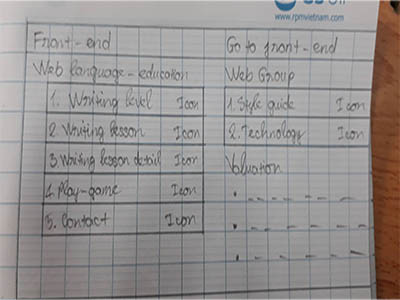 www.rpmvietnam.com
Front-end
Web language-education
1. Writing level Icon
2. Writing lesson Icon
3. Writing lesson detail Icon
4. Play-game Icon
5. Contact Icon
Go to front-end
Web Group
1. Style guide Icon
2. Technology Icon
Valuation